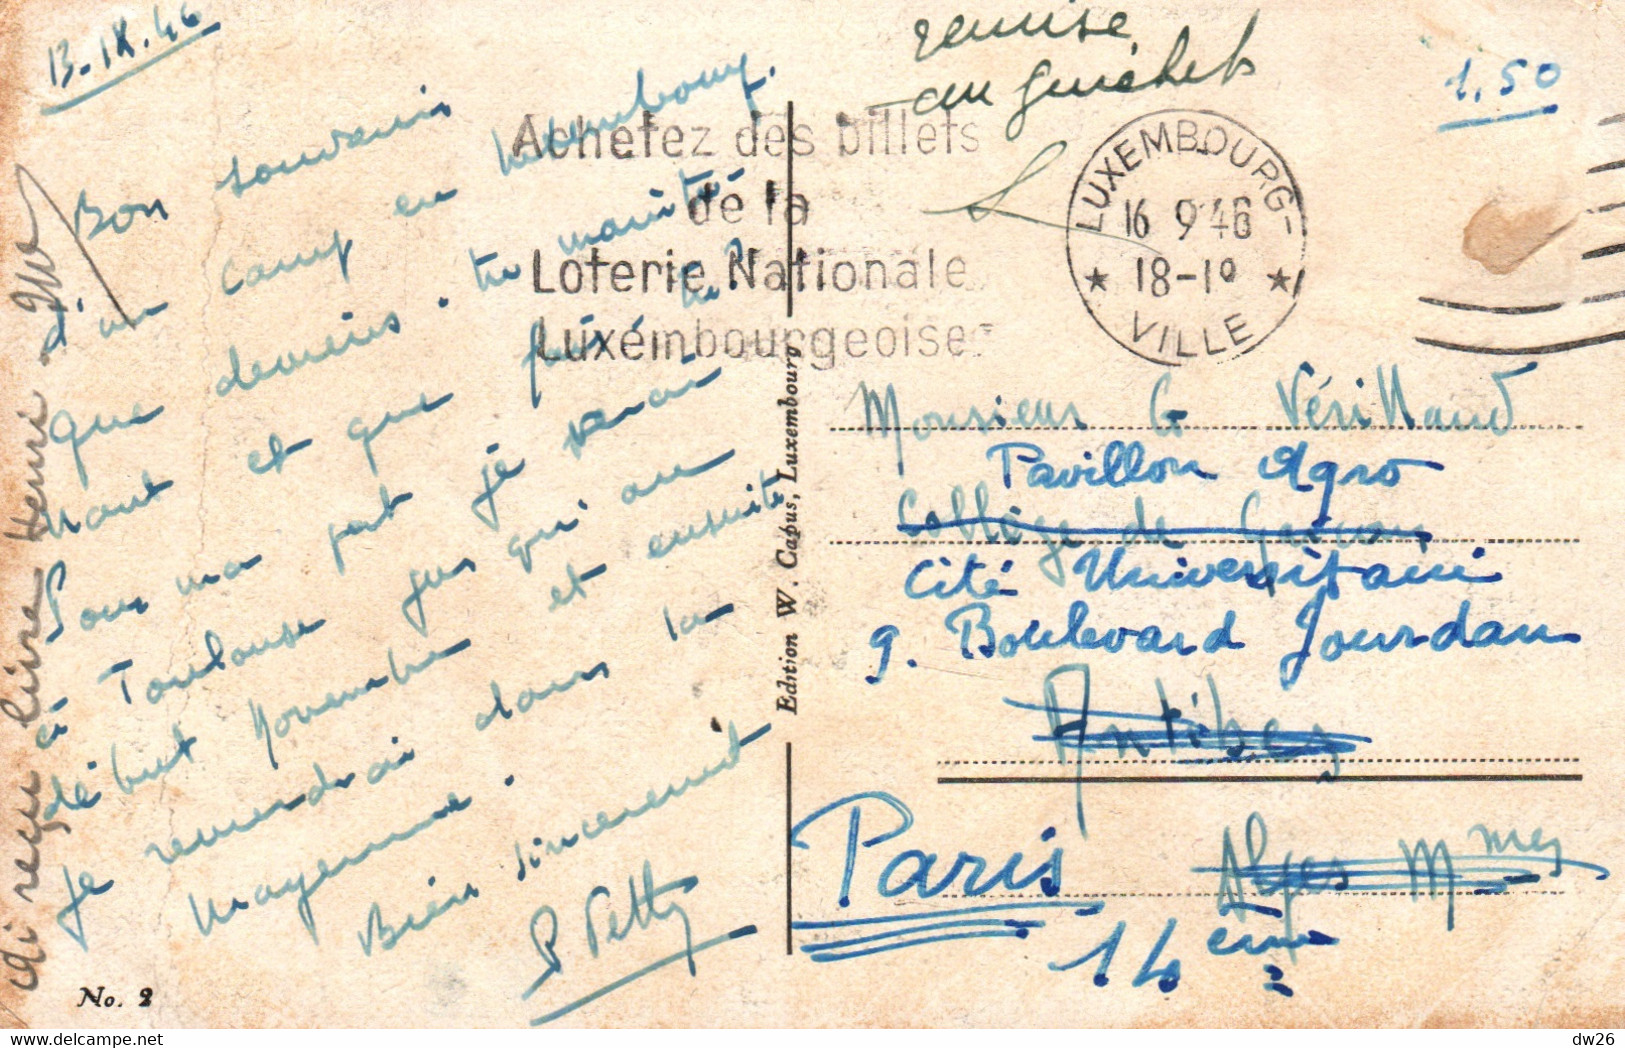 13-IX.46
Bon souvenir
d'un camp en Luxembourg.
que deviens-tu mainte-
nant et que fais-tu?
Pour ma part je serai
à Toulouse jusqu'au
début Novembre et ensuite
je reviendrai dans la
Mayenne.
Bien sincèrement
P. Petty
ai reçu livre Henri
No. 2
remise
au guichet
1,50
Achetez des billets
de la
Loterie Nationale
Luxembourgeoise
LUXEMBOURG-
16 9 46
18-19
VILLE
Edition W. Capus, Luxembourg
Monsieur G Vérillaud
Pavillon Agro
Collège de Garçons
Cité Universitaire
9. Boulevard Jourdan
Antibes
Paris Alpes Mmes
14ème
dw26